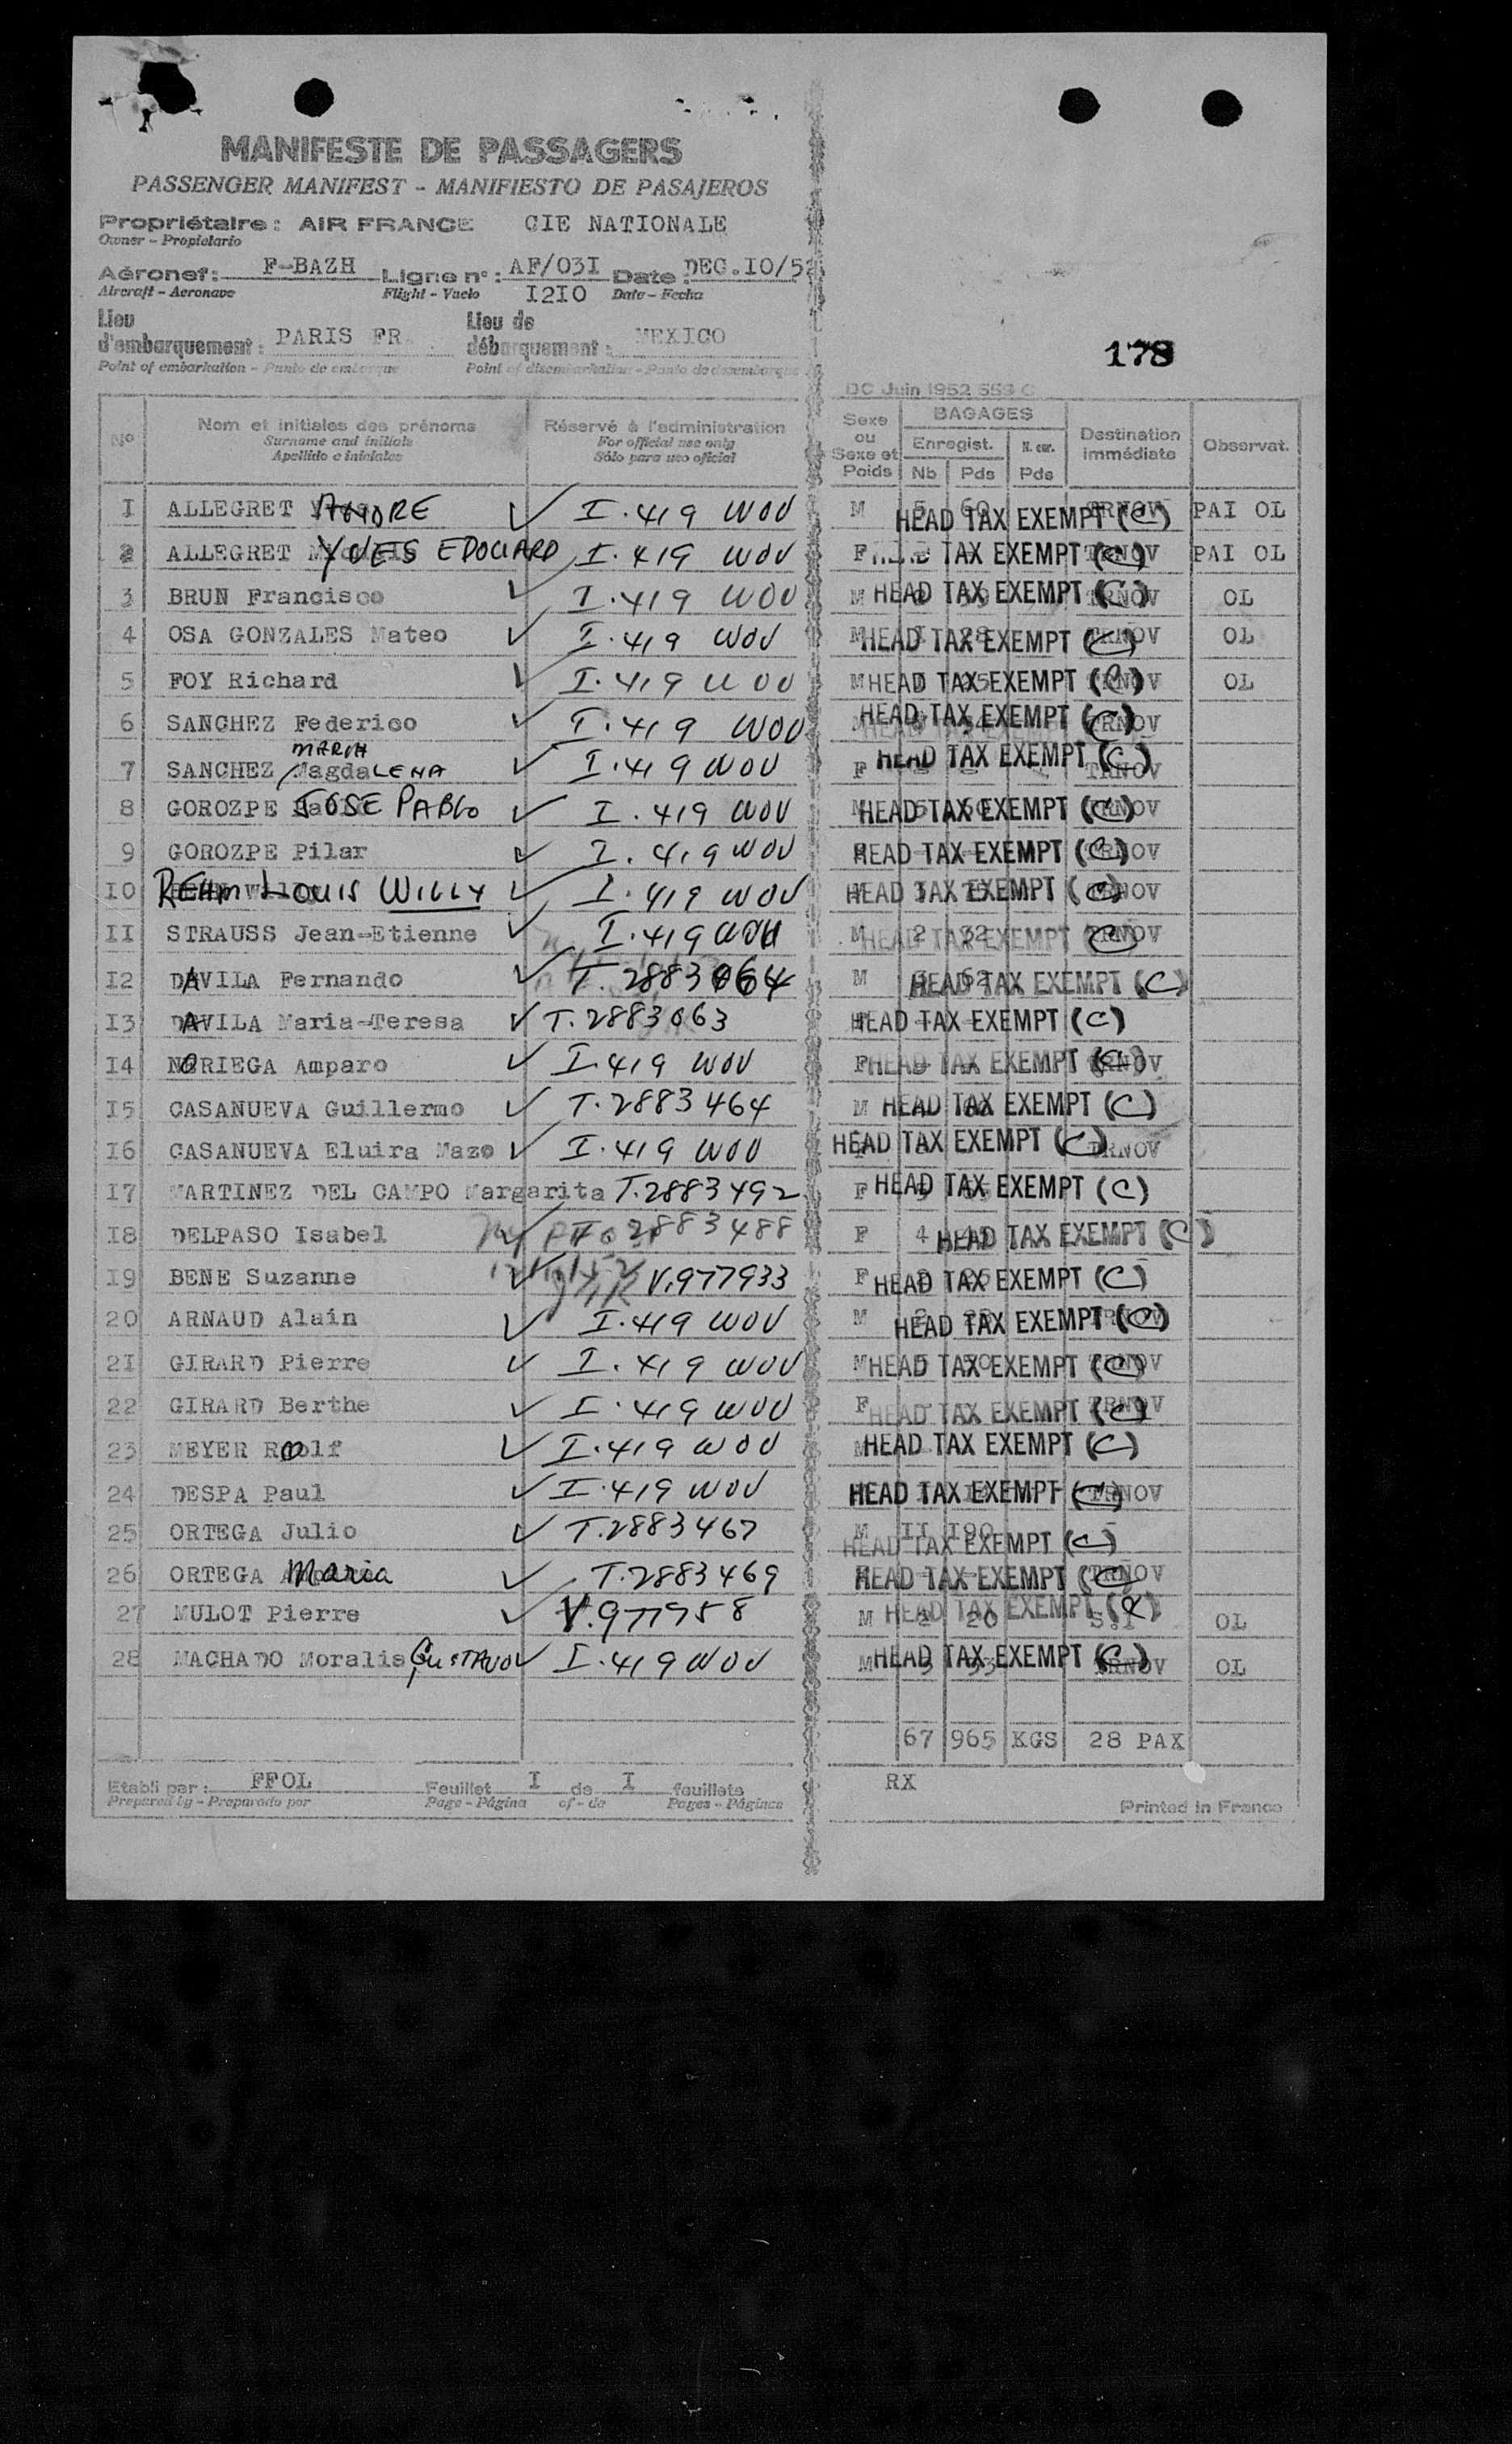 MANIFESTE DE PASSAGERS
PASSENGER MANIFEST - MANIFIESTO DE PASAJEROS
Propriétaire : AIR FRANCE CIE NATIONALE
Owner - Propietario
Aéronef : F-BAZH Ligne n° : AF/03I Date : DEC.IO/52
Aircraft - Aeronave Flight - Vuelo I2IO Date - Fecha
Lieu d'embarquement : PARIS FR. Lieu de débarquement : MEXICO
Point of embarkation - Punto de embarque Point of disembarkation - Punto de desembarque
178
DC Juin 1952 553 C
N° Nom et initiales des prénoms Réservé à l'administration Sexe ou Sexe et Poids BAGAGES Destination immédiate Observat.
Surname and initials For official use only Enregist. N. enr.
Apellido e iniciales Sólo para uso oficial Nb Pds Pds
I ALLEGRET ANDRE ✓ I.419 WOV M 60 HEAD TAX EXEMPT (C) TRNOV PAI OL
2 ALLEGRET YVES EDOUARD I.419 WOV F TAX EXEMPT (C) TRNOV PAI OL
3 BRUN Francisco ✓ I.419 WOV M HEAD TAX EXEMPT (C) TRNOV OL
4 OSA GONZALES Mateo ✓ I.419 WOV M HEAD TAX EXEMPT (C) TRNOV OL
5 FOY Richard ✓ I.419 WOV M HEAD TAX EXEMPT (C) TRNOV OL
6 SANCHEZ Federico ✓ I.419 WOV HEAD TAX EXEMPT (C) TRNOV
7 SANCHEZ MARIA MagdaLENA ✓ I.419 WOV F HEAD TAX EXEMPT (C) TRNOV
8 GOROZPE JOSE PABLO ✓ I.419 WOV HEAD TAX EXEMPT (C) TRNOV
9 GOROZPE Pilar ✓ I.419 WOV HEAD TAX EXEMPT (C) TRNOV
IO REHM LOUIS WILLY ✓ I.419 WOV HEAD TAX EXEMPT (C) TRNOV
II STRAUSS Jean-Etienne ✓ I.419 WOV M 2 32 HEAD TAX EXEMPT (C) TRNOV
I2 DAVILA Fernando ✓ T.2883064 M HEAD TAX EXEMPT (C)
I3 DAVILA Maria-Teresa ✓ T.2883063 HEAD TAX EXEMPT (C)
I4 NORIEGA Amparo ✓ I.419 WOV F HEAD TAX EXEMPT (C) TRNOV
I5 CASANUEVA Guillermo ✓ T.2883464 M HEAD TAX EXEMPT (C)
I6 CASANUEVA Eluira Mazo ✓ I.419 WOV HEAD TAX EXEMPT (C) TRNOV
I7 MARTINEZ DEL CAMPO Margarita T.2883492 F HEAD TAX EXEMPT (C)
I8 DELPASO Isabel ✓ 2883488 F 4 HEAD TAX EXEMPT (C)
I9 BENE Suzanne ✓ V.977933 F HEAD TAX EXEMPT (C)
20 ARNAUD Alain ✓ I.419 WOV M HEAD TAX EXEMPT (C) TRNOV
2I GIRARD Pierre ✓ I.419 WOV M HEAD TAX EXEMPT (C) TRNOV
22 GIRARD Berthe ✓ I.419 WOV F HEAD TAX EXEMPT (C) TRNOV
23 MEYER Roolf ✓ I.419 WOV M HEAD TAX EXEMPT (C)
24 DESPA Paul ✓ I.419 WOV HEAD TAX EXEMPT (C) TRNOV
25 ORTEGA Julio ✓ T.2883467 M II I90 HEAD TAX EXEMPT (C)
26 ORTEGA Maria ✓ T.2883469 HEAD TAX EXEMPT (C) TRNOV
27 MULOT Pierre ✓ V.977958 M 20 HEAD TAX EXEMPT (C) OL
28 MACHADO Moralis GUSTAVO ✓ I.419 WOV M HEAD TAX EXEMPT (C) TRNOV OL
67 965 KGS 28 PAX
Etabli par : FFOL Feuillet I de I feuillets RX
Prepared by - Preparado por Page - Página of - de Pages - Páginas Printed in France